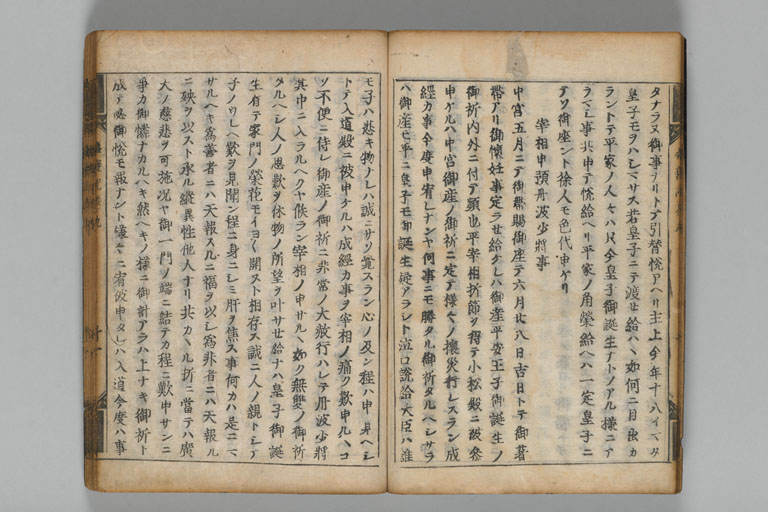 タナラヌ御事ナリトテ引替悦アヘリ主上今年十八イマタ
皇子モヲハシマサス若皇子ニテ渡セ給ハヽ如何ニ目出カ
ラントテ平家ノ人々ハ只今皇子御誕生ナトノアル様ニテ
ラマシ事共申テ悦給ヘリ平家ノ角榮給ヘハ一定皇子ニ
テソ御座ント徐人モ色代申ケリ
宰相申預丹波少將事
中宮五月ニテ御帯賜御座テ六月廿八日吉日トテ御著
帯アリ御懐妊事定ラセ給ケレハ御産平安王子御誕生ノ
御祈内外ニ付テ頭也平宰相折節ヲ得テ小松殿ニ被参
申ケルハ中宮御産ノ御祈ニ定テ様々ノ攘災行レスラン成
經カ事今度申宥レナンヤ何事ニモ勝タル御祈タルヘシサラ
ハ御産モ平ニ皇子モ御誕生疑アラシト泣口説給大臣ハ誰
モ子ハ悲キ物ナレハ誠ニサソ覚スラン心ノ及ン程ハ申見ヘシ
トテ入道殿ニ被申ケルハ成經カ事ヲ宰相ノ痛ク歎申ルヽコ
ソ不便ニ侍レ御産ノ御祈ニ非常ノ大赦行ハレテ丹波少將
其中ニ入ラルヘクヤ候ラン宰相ノ申サルヽ如ク無雙ノ御祈
タルヘシ人ノ思歎ヲ休物ノ所望ヲ叶サセ給ナハ皇子御誕
生有テ家門ノ榮花モイヨ〱開スト相存ス誠ニ人ノ親トシテ
子ノウレヘ歎ヲ見聞ン程ニ身ニシミ肝ヲ焦ス事何カハ是ニマ
サルヘキ為善者ニハ天報スルニ福ヲ以シ為非者ニハ天報ル
ニ殃ヲ以スト承ル縦異性他人ナリ共カヽル折ニ當テハ廣
大ノ慈悲ヲ可施況ヤ御一門ノ端ニ結テカ程ニ歎申サンニ
争カ御憐ナカルヘキ然ヘキノ様ニ御計アラハ上ナキ御祈ト
成テ感御悦モ報ナント
宥被申タレハ入道今度ハ事